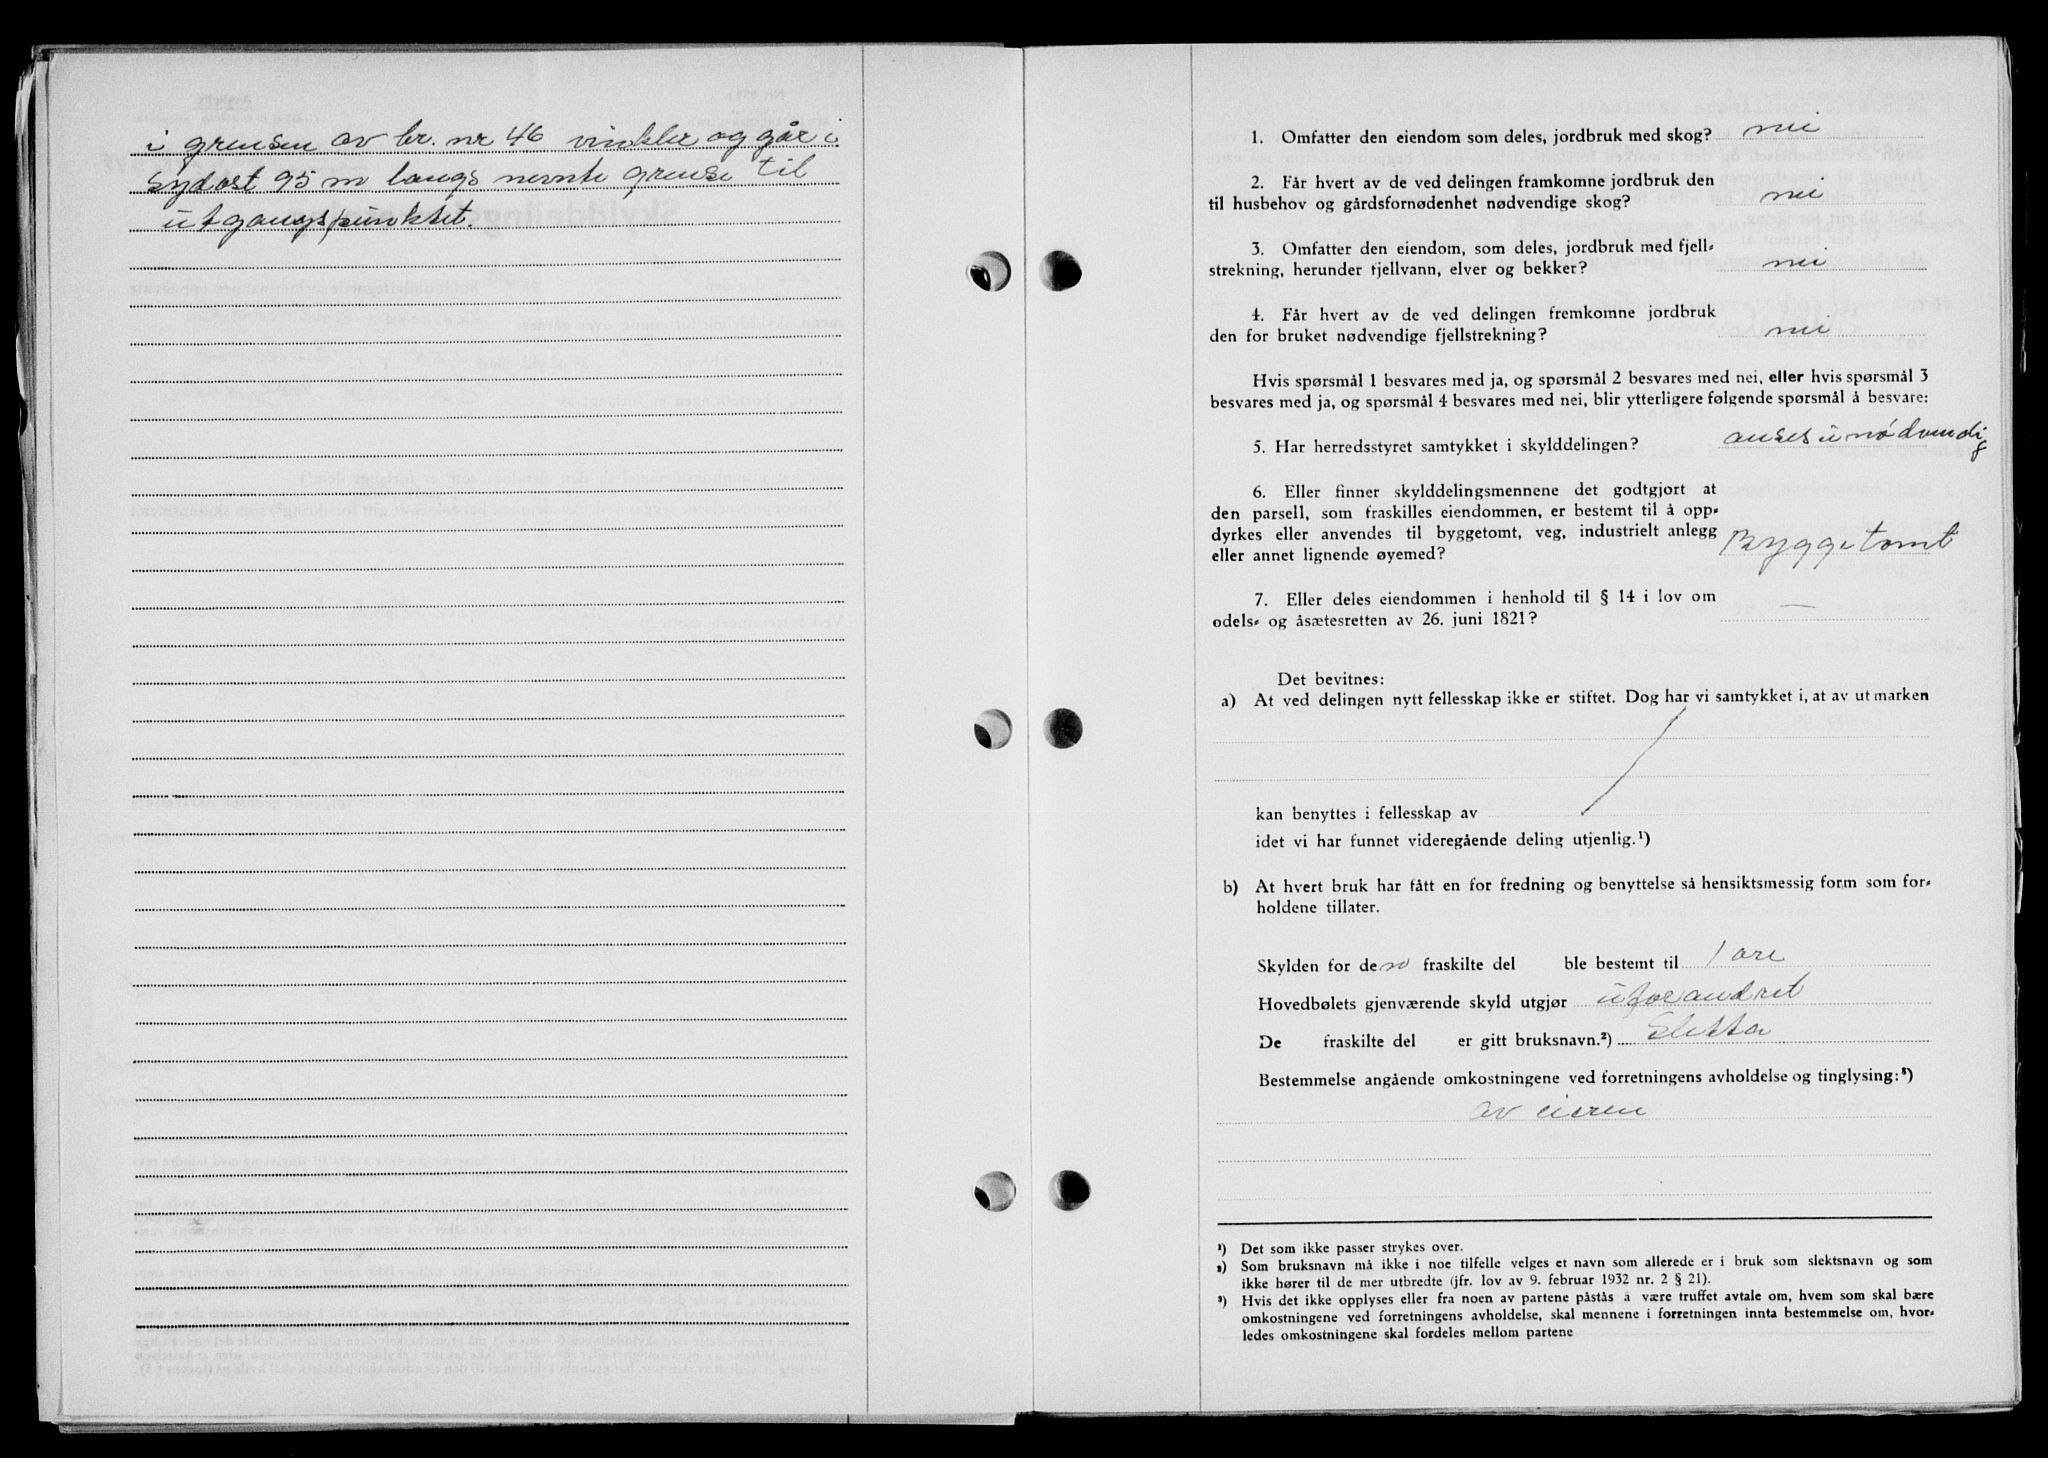 i grensen av br. nr 46 vinkler og går i
sydøst 95 m langs nevnte grense til
utgangspunktet.
1. Omfatter den eiendom som deles, jordbruk med skog? nei
2. Får hvert av de ved delingen framkomne jordbruk den
til husbehov og gårdsfornødenhet nødvendige skog? nei
3. Omfatter den eiendom, som deles, jordbruk med fjell-
strekning, herunder fjellvann, elver og bekker? nei
4. Får hvert av de ved delingen fremkomne jordbruk
den for bruket nødvendige fjellstrekning? nei
Hvis spørsmål 1 besvares med ja, og spørsmål 2 besvares med nei, eller hvis spørsmål 3
besvares med ja, og spørsmål 4 besvares med nei, blir ytterligere følgende spørsmål å besvare:
5. Har herredsstyret samtykket i skylddelingen? anses unødvendig
6. Eller finner skylddelingsmennene det godtgjort at
den parsell, som fraskilles eiendommen, er bestemt til å opp-
dyrkes eller anvendes til byggetomt, veg, industrielt anlegg
eller annet lignende øyemed? Byggetomt
7. Eller deles eiendommen i henhold til § 14 i lov om
odels- og åsætesretten av 26. juni 1821? —
Det bevitnes:
a) At ved delingen nytt fellesskap ikke er stiftet. Dog har vi samtykket i, at av utmarken
kan benyttes i fellesskap av
idet vi har funnet videregående deling utjenlig.¹)
b) At hvert bruk har fått en for fredning og benyttelse så hensiktsmessig form som for-
holdene tillater.
Skylden for den fraskilte del ble bestemt til 1 øre
Hovedbølets gjenværende skyld utgjør uforandret
De fraskilte del er gitt bruksnavn.²) Sletta
Bestemmelse angående omkostningene ved forretningens avholdelse og tinglysing:³)
av eieren
¹) Det som ikke passer strykes over.
²) Som bruksnavn må ikke i noe tilfelle velges et navn som allerede er i bruk som slektsnavn og som
ikke hører til de mer utbredte (jfr. lov av 9. februar 1932 nr. 2 § 21).
³) Hvis det ikke opplyses eller fra noen av partene påstås å være truffet avtale om, hvem som skal bære
omkostningene ved forretningens avholdelse, skal mennene i forretningen innta bestemmelse om, hvor-
ledes omkostningene skal fordeles mellom partene